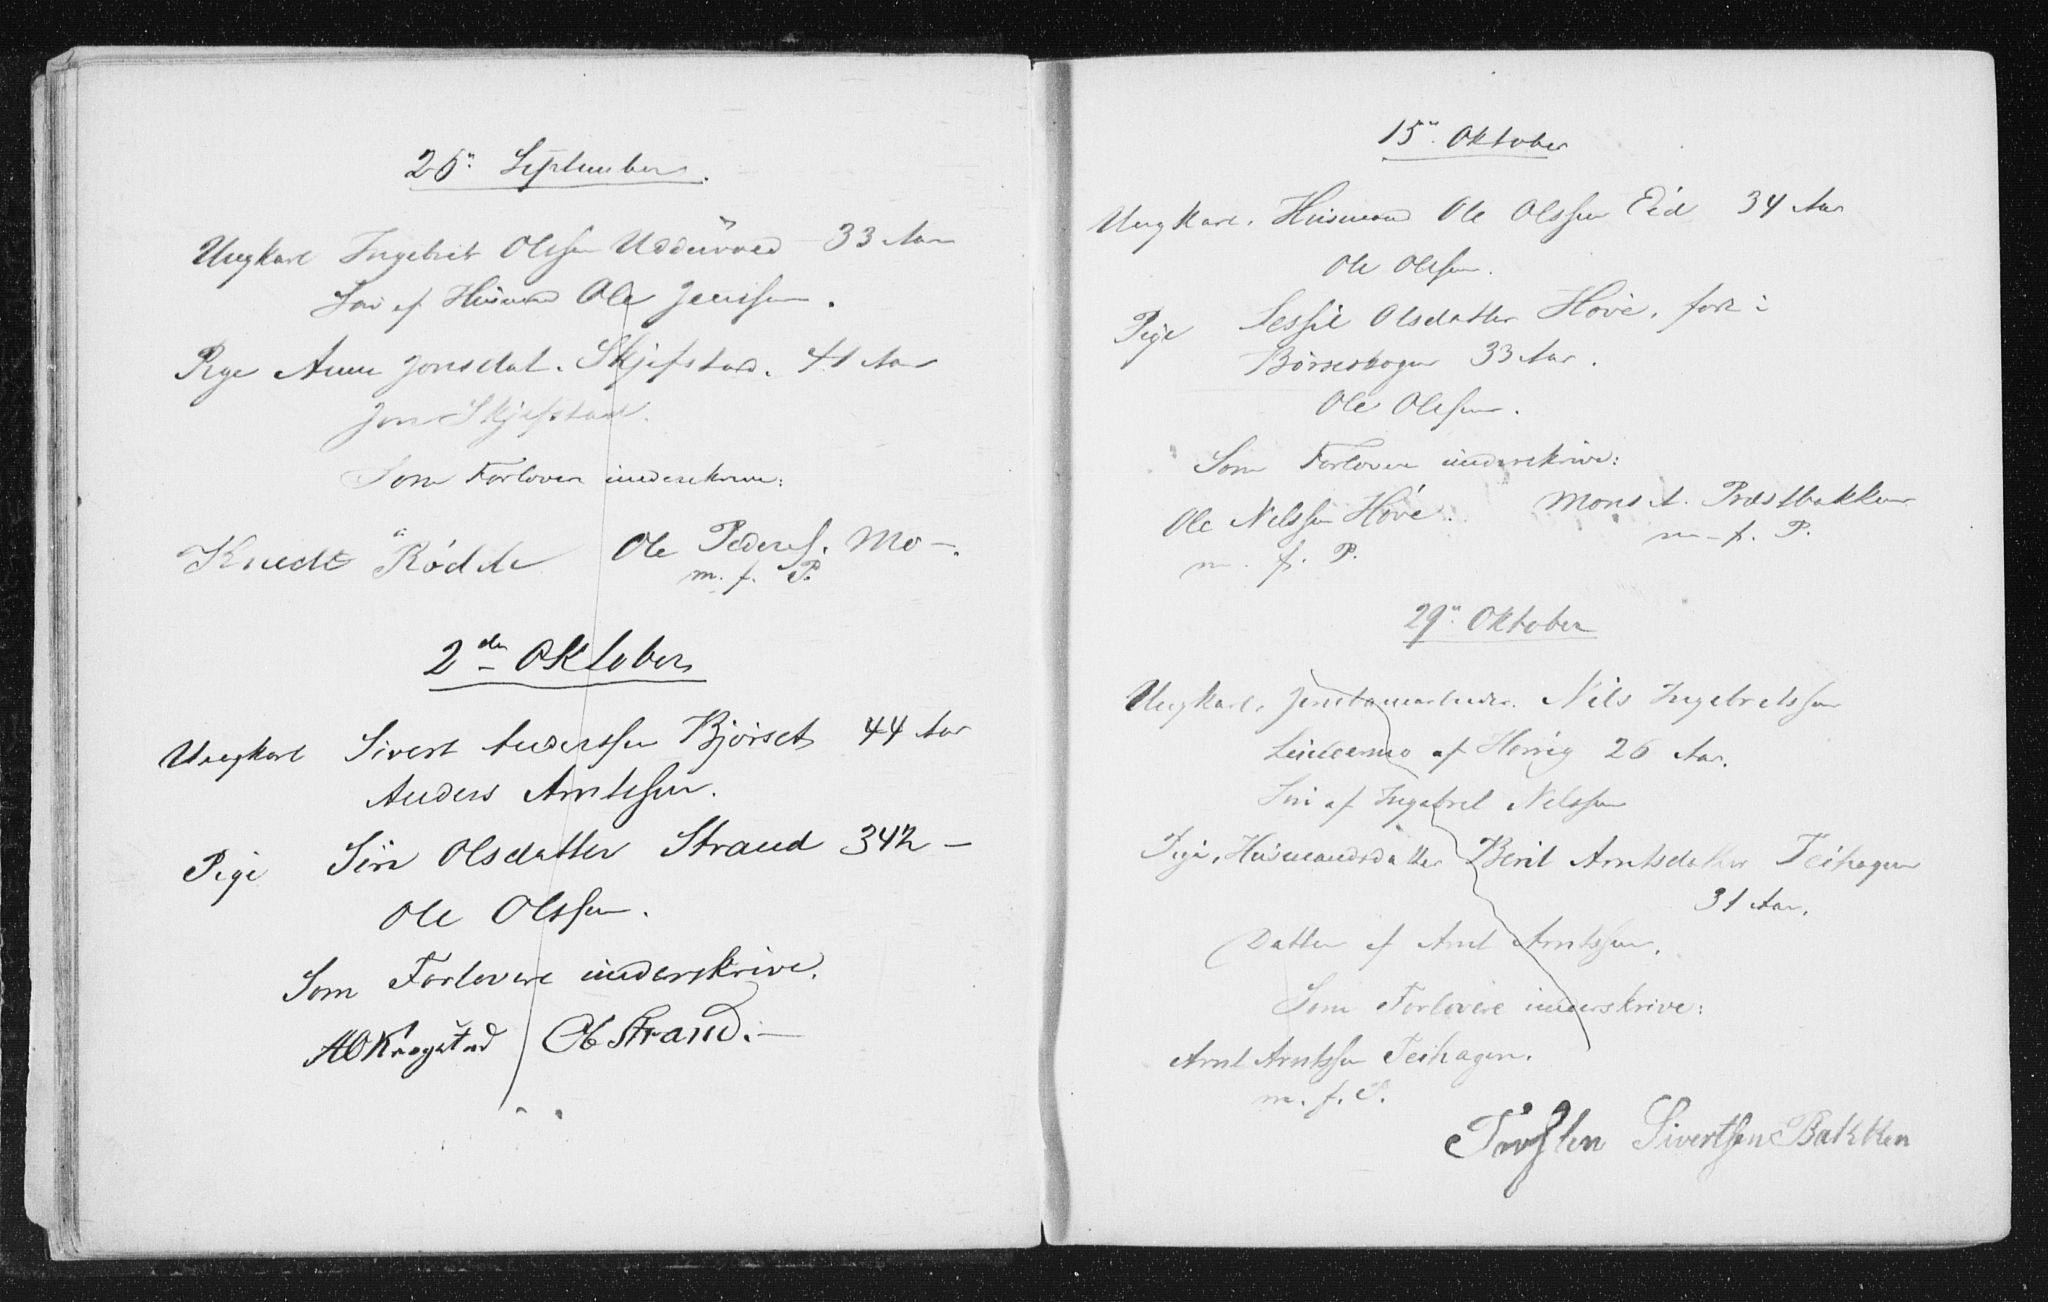 25" September.
Ungkarl Ingebrit Olssen Uddüvoed 33 Aar
Søn af Husmand Ole Jenssen.
Pige Anne Jonsdat. Skjefstad. 41 Aar
Jon Skjefstad.
Som Forlovere underskrive:
Knudt Rødde Ole Peders. Mo -.
m. f. P.
2den Oktober
Ungkarl Sivert Anderssen Bjørset 44 Aar
Anders Arntssen.
Pige Siri Olsdatter Strand 34½ -
Ole Olssen.
Som Forlovere underskrive.
AO Krogstad Ob Strand. -
15" Oktober
Ungkarl. Husmand Ole Olssen Eid 34 Aar
Ole Olssen.
Pige Sessil Olsdatter Hove, født i
Børseskogn 33 Aar.
Ole Olssen.
Som Forlovere underskrive:
Ole Nilssen Hove. Mons A. Præstbakken
m. f. P. m. f. P.
29" Oktober
Ungkarl. Jernbanearbeider. Nils Ingebretssen
Lindesmo af Horrig 26 Aar.
Søn af Ingebret Nilssen
Pige, Husmandsdatter Berit Arntsdatter Teihagen
31 Aar.
Datter af Arnt Arntssen.
Som Forlovere underskrive:
Arnt Arntssen Teihagen.
m. f. P.
Trosten Sivertsen Bakken